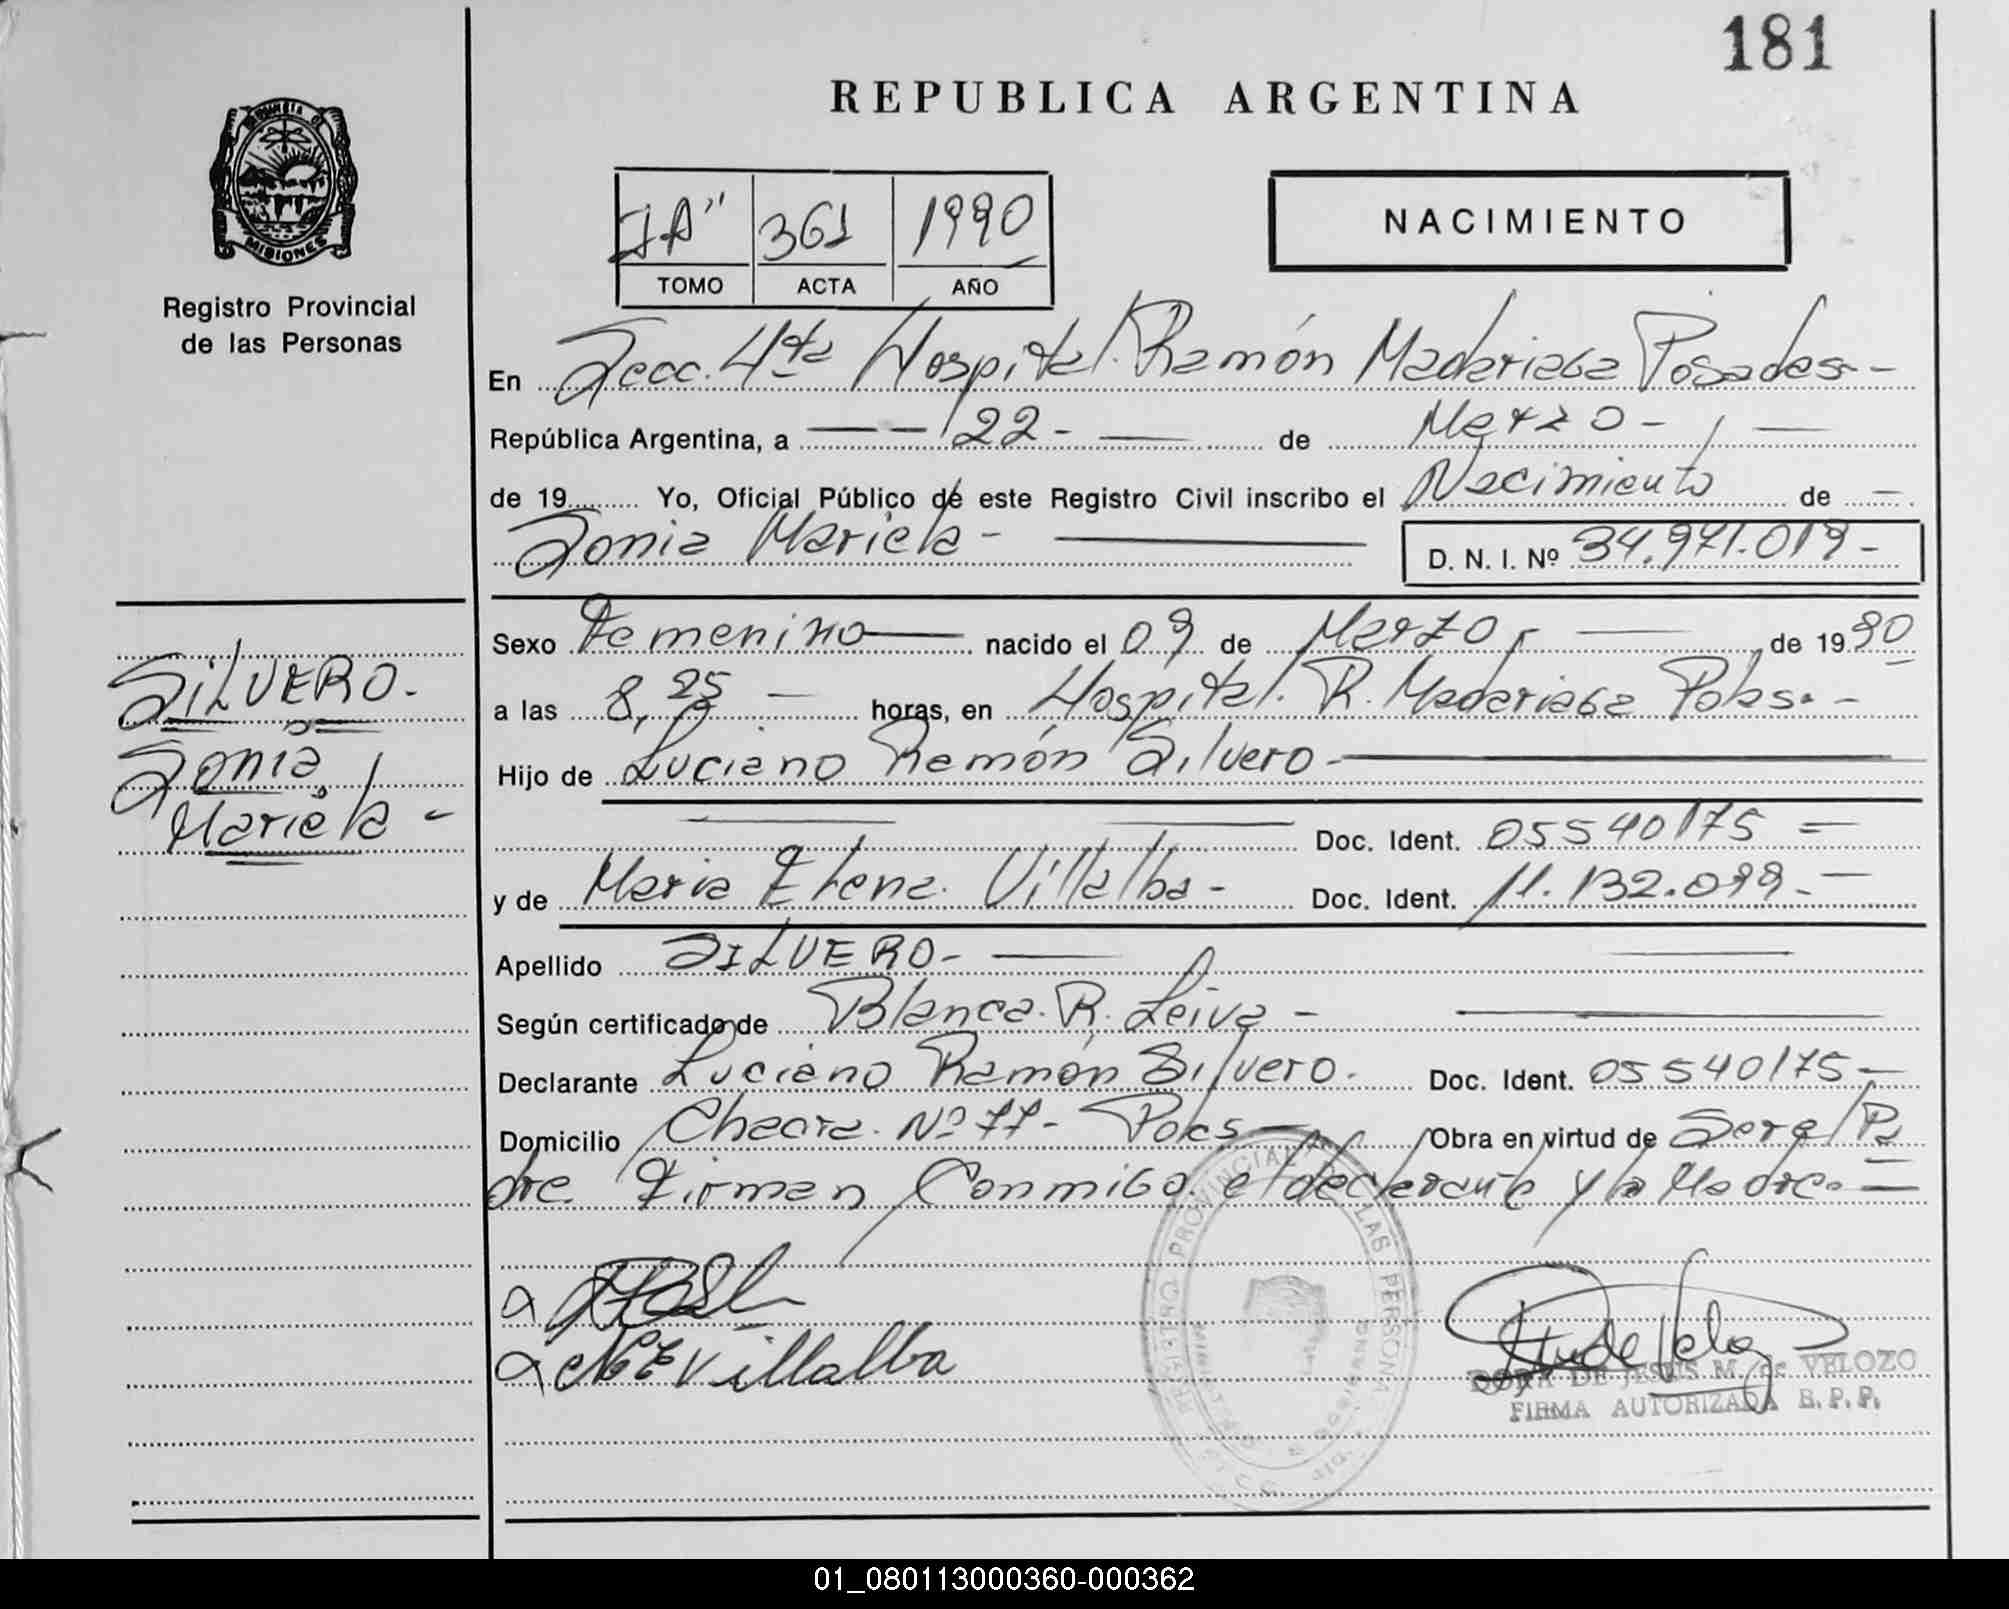 181
REPUBLICA ARGENTINA
PROVINCIA DE
MISIONES
Registro Provincial
de las Personas
"A" 361 1990
TOMO ACTA AÑO
NACIMIENTO
En Secc. 4ta Hospital Ramón Madariaga Posadas.-
República Argentina, a 22- de Marzo-
de 19........ Yo, Oficial Público de este Registro Civil inscribo el Nacimiento de -
Sonia Mariela- D. N. I. Nº 34.971.019-
Sexo Femenino nacido el 09 de Marzo de 1990
a las 8,25 - horas, en Hospital R. Madariaga Pdas.-
Hijo de Luciano Ramón Silvero
Doc. Ident. 05540175
y de Maria Elena Villalba- Doc. Ident. 11.132.099.-
Apellido SILVERO-
Según certificado de Blanca R. Leiva-
Declarante Luciano Ramón Silvero. Doc. Ident. 05540175-
Domicilio Chacra Nº 77- Pdas- Obra en virtud de Ser el Pa
dre Firman Conmigo el declarante y la Madre.=
SILVERO.
Sonia
Mariela-
M E Villalba
REGISTRO PROVINCIAL DE LAS PERSONAS
DORA DE JESUS M. de VELOZO
FIRMA AUTORIZADA R. P. P.
01_080113000360-000362